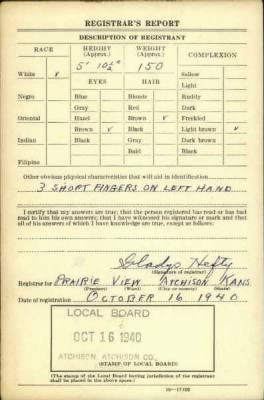 REGISTRAR'S REPORT
DESCRIPTION OF REGISTRANT
RACE HEIGHT (Approx.) WEIGHT (Approx.) COMPLEXION
5' 10½" 150
White ✓ Sallow
Light
EYES HAIR
Negro Blue Blonde Ruddy
Gray Red Dark
Oriental Hazel Brown ✓ Freckled
Brown ✓ Black Light brown ✓
Indian Black Gray Dark brown
Bald Black
Filipino
Other obvious physical characteristics that will aid in identification
3 SHORT FINGERS ON LEFT HAND
I certify that my answers are true; that the person registered has read or has had
read to him his own answers; that I have witnessed his signature or mark and that
all of his answers of which I have knowledge are true, except as follows:
Gladys Hefty
(Signature of registrar)
Registrar for PRAIRIE VIEW ATCHISON KANS
(Precinct) (Ward) (City or county) (State)
Date of registration OCTOBER 16 1940
LOCAL BOARD
OCT 16 1940
ATCHISON, ATCHISON CO.,
(STAMP OF LOCAL BOARD)
(The stamp of the Local Board having jurisdiction of the registrant
shall be placed in the above space.)